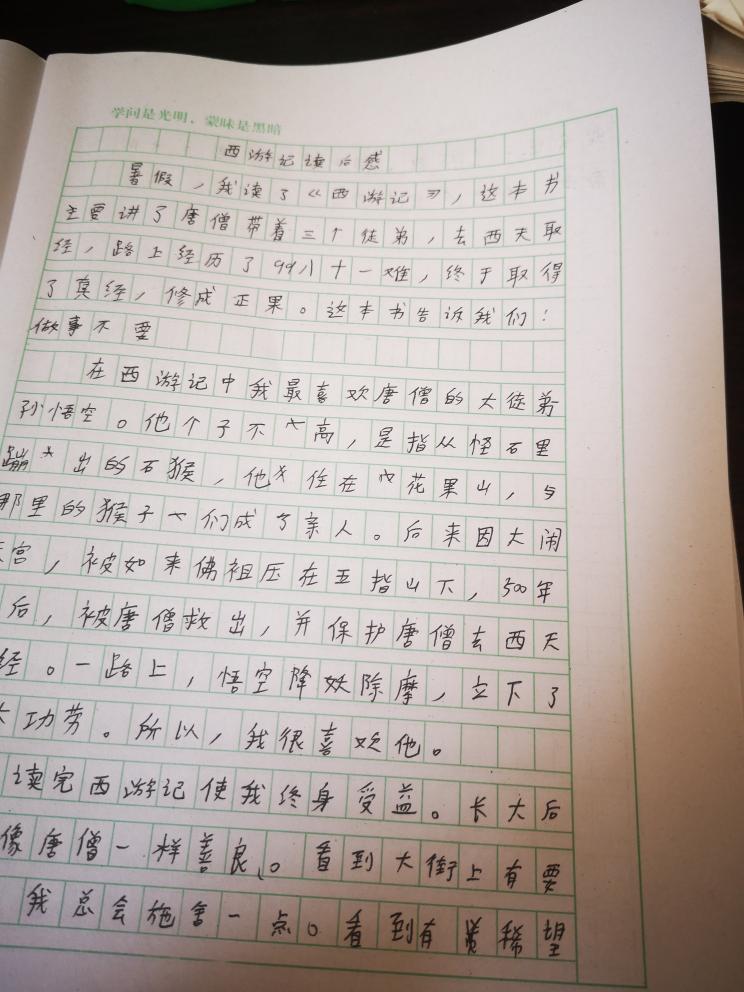 学问是光明，蒙昧是黑暗
西游记读后感
暑假，我读了《西游记》，这本书
主要讲了唐僧带着三个徒弟，去西天取
经，路上经历了99八十一难，终于取得
了真经，修成正果。这本书告诉我们：
做事不要
在西游记中我最喜欢唐僧的大徒弟
孙悟空。他个子不高，是指从怪石里
蹦出的石猴，他住在花果山，与
那里的猴子们成了亲人。后来因大闹
宫，被如来佛祖压在五指山下，500年
后，被唐僧救出，并保护唐僧去西天
经。一路上，悟空降妖除摩，立下了
功劳。所以，我很喜欢他。
读完西游记使我终身受益。长大后
像唐僧一样善良。看到大街上有要
我总会施舍一点。看到有稀望